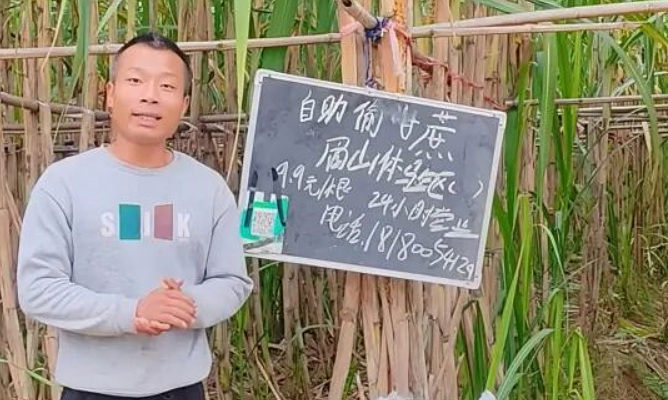 自助偷甘蔗
眉山体验区( )
9.9元/根 24小时营业
电话.18180054129
S K